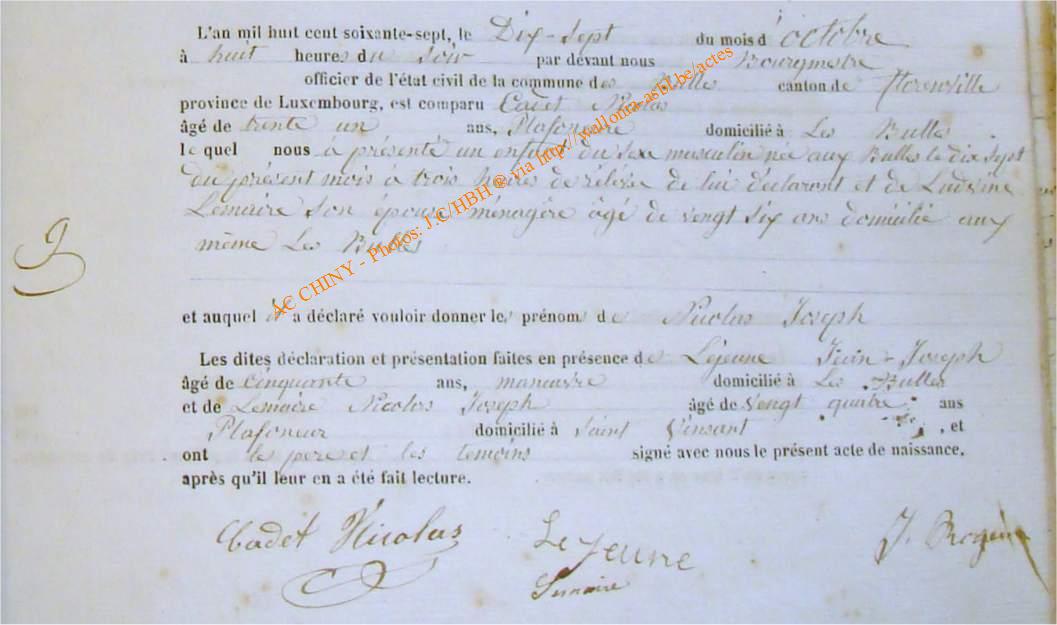 L'an mil huit cent soixante-sept, le Dix-Sept du mois d'octobre
à huit heures du Soir par dévant nous Bourgmestre
officier de l'état civil de la commune des Bulles canton de Florenville
province de Luxembourg, est comparu Cadet Nicolas
âgé de trente un ans, Plafoneure domicilié à Les Bulles
le quel nous a présenté un enfant du sexe masculin née aux Bulles le dix Sept
du présent mois à trois heures de rélévée de lui déclarant et de
Lemaire Son épouse ménagère âgé de vengt six ans domicilié aux
même Les Bulles
et auquel il a déclaré vouloir donner les prénoms de Nicolas Joseph
Les dites déclaration et présentation faites en présence de Lejeune Joseph
âgé de cinquante ans, manœuvre domicilié à Les Bulles
et de Lemaire Nicolas Joseph âgé de vengt quatre ans
Plafoneur domicilié à Saint Vinsant , et
ont le pere et les temoins signé avec nous le présent acte de naissance,
après qu'il leur en a été fait lecture.
Cadet Nicolas Le Jeune
Lemaire
AC CHINY - Photos: J.C/HBH ® via http://wallonia-asbl.be/actes